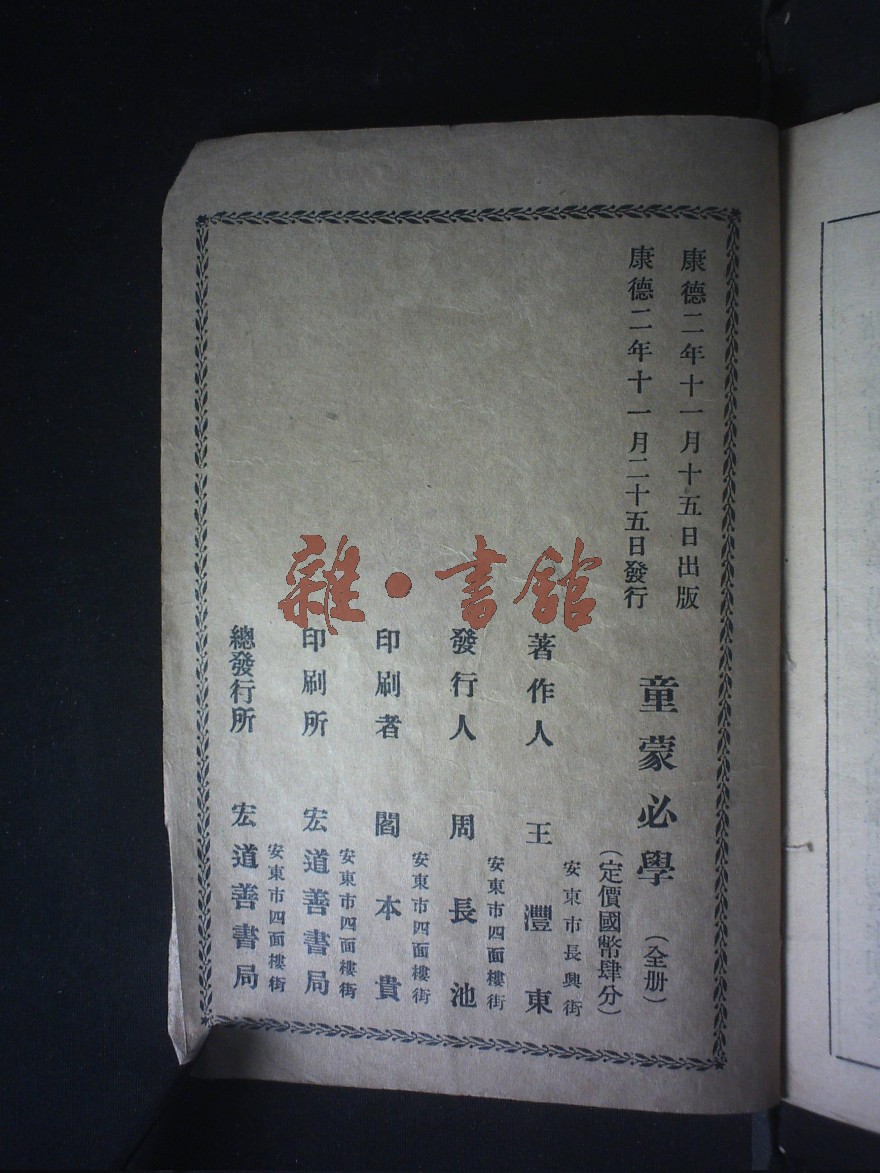 康德二年十一月十五日出版
康德二年十一月二十五日發行
童蒙必學
（全册）
（定價國幣肆分）
安東市長興街
著作人 王灃東
安東市四面樓街
發行人 周長池
安東市四面樓街
印刷者 閻本貴
安東市四面樓街
印刷所 宏道善書局
安東市四面樓街
總發行所 宏道善書局
雜·書館